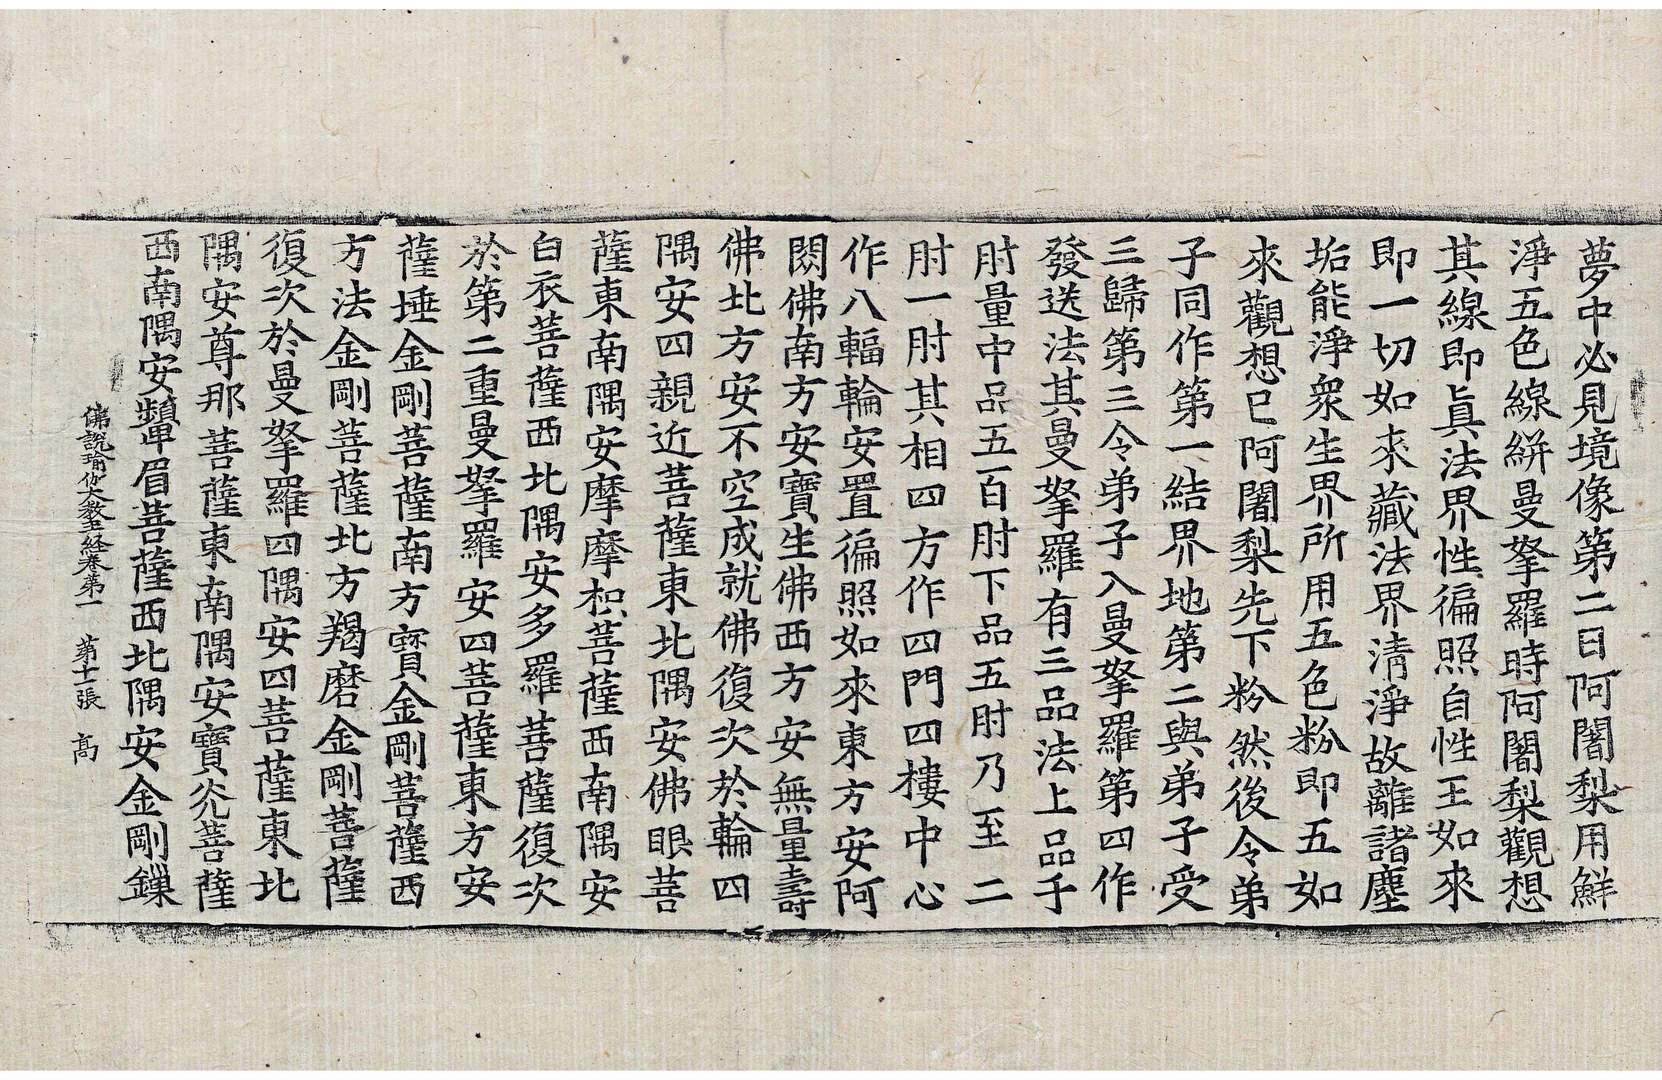 夢中必見境像第二日阿闍梨用鮮
淨五色線絣曼拏羅時阿闍梨觀想
其線即眞法界性徧照自性王如來
即一切如來藏法界清淨故離諸塵
垢能淨衆生界所用五色粉即五如
來觀想已阿闍梨先下粉然後令弟
子同作第一結界地第二與弟子受
三歸第三令弟子入曼拏羅第四作
發送法其曼拏羅有三品法上品千
肘量中品五百肘下品五肘乃至二
肘一肘其相四方作四門四樓中心
作八輻輪安置徧照如來東方安阿
閦佛南方安寶生佛西方安無量壽
佛北方安不空成就佛復次於輪四
隅安四親近菩薩東北隅安佛眼菩
薩東南隅安摩摩枳菩薩西南隅安
白衣菩薩西北隅安多羅菩薩復次
於第二重曼拏羅安四菩薩東方安
薩埵金剛菩薩南方寶金剛菩薩西
方法金剛菩薩北方羯磨金剛菩薩
復次於曼拏羅四隅安四菩薩東北
隅安尊那菩薩東南隅安寶光菩薩
西南隅安顰眉菩薩西北隅安金剛鏁
佛說瑜伽大教王経卷第一 苐十一張 髙